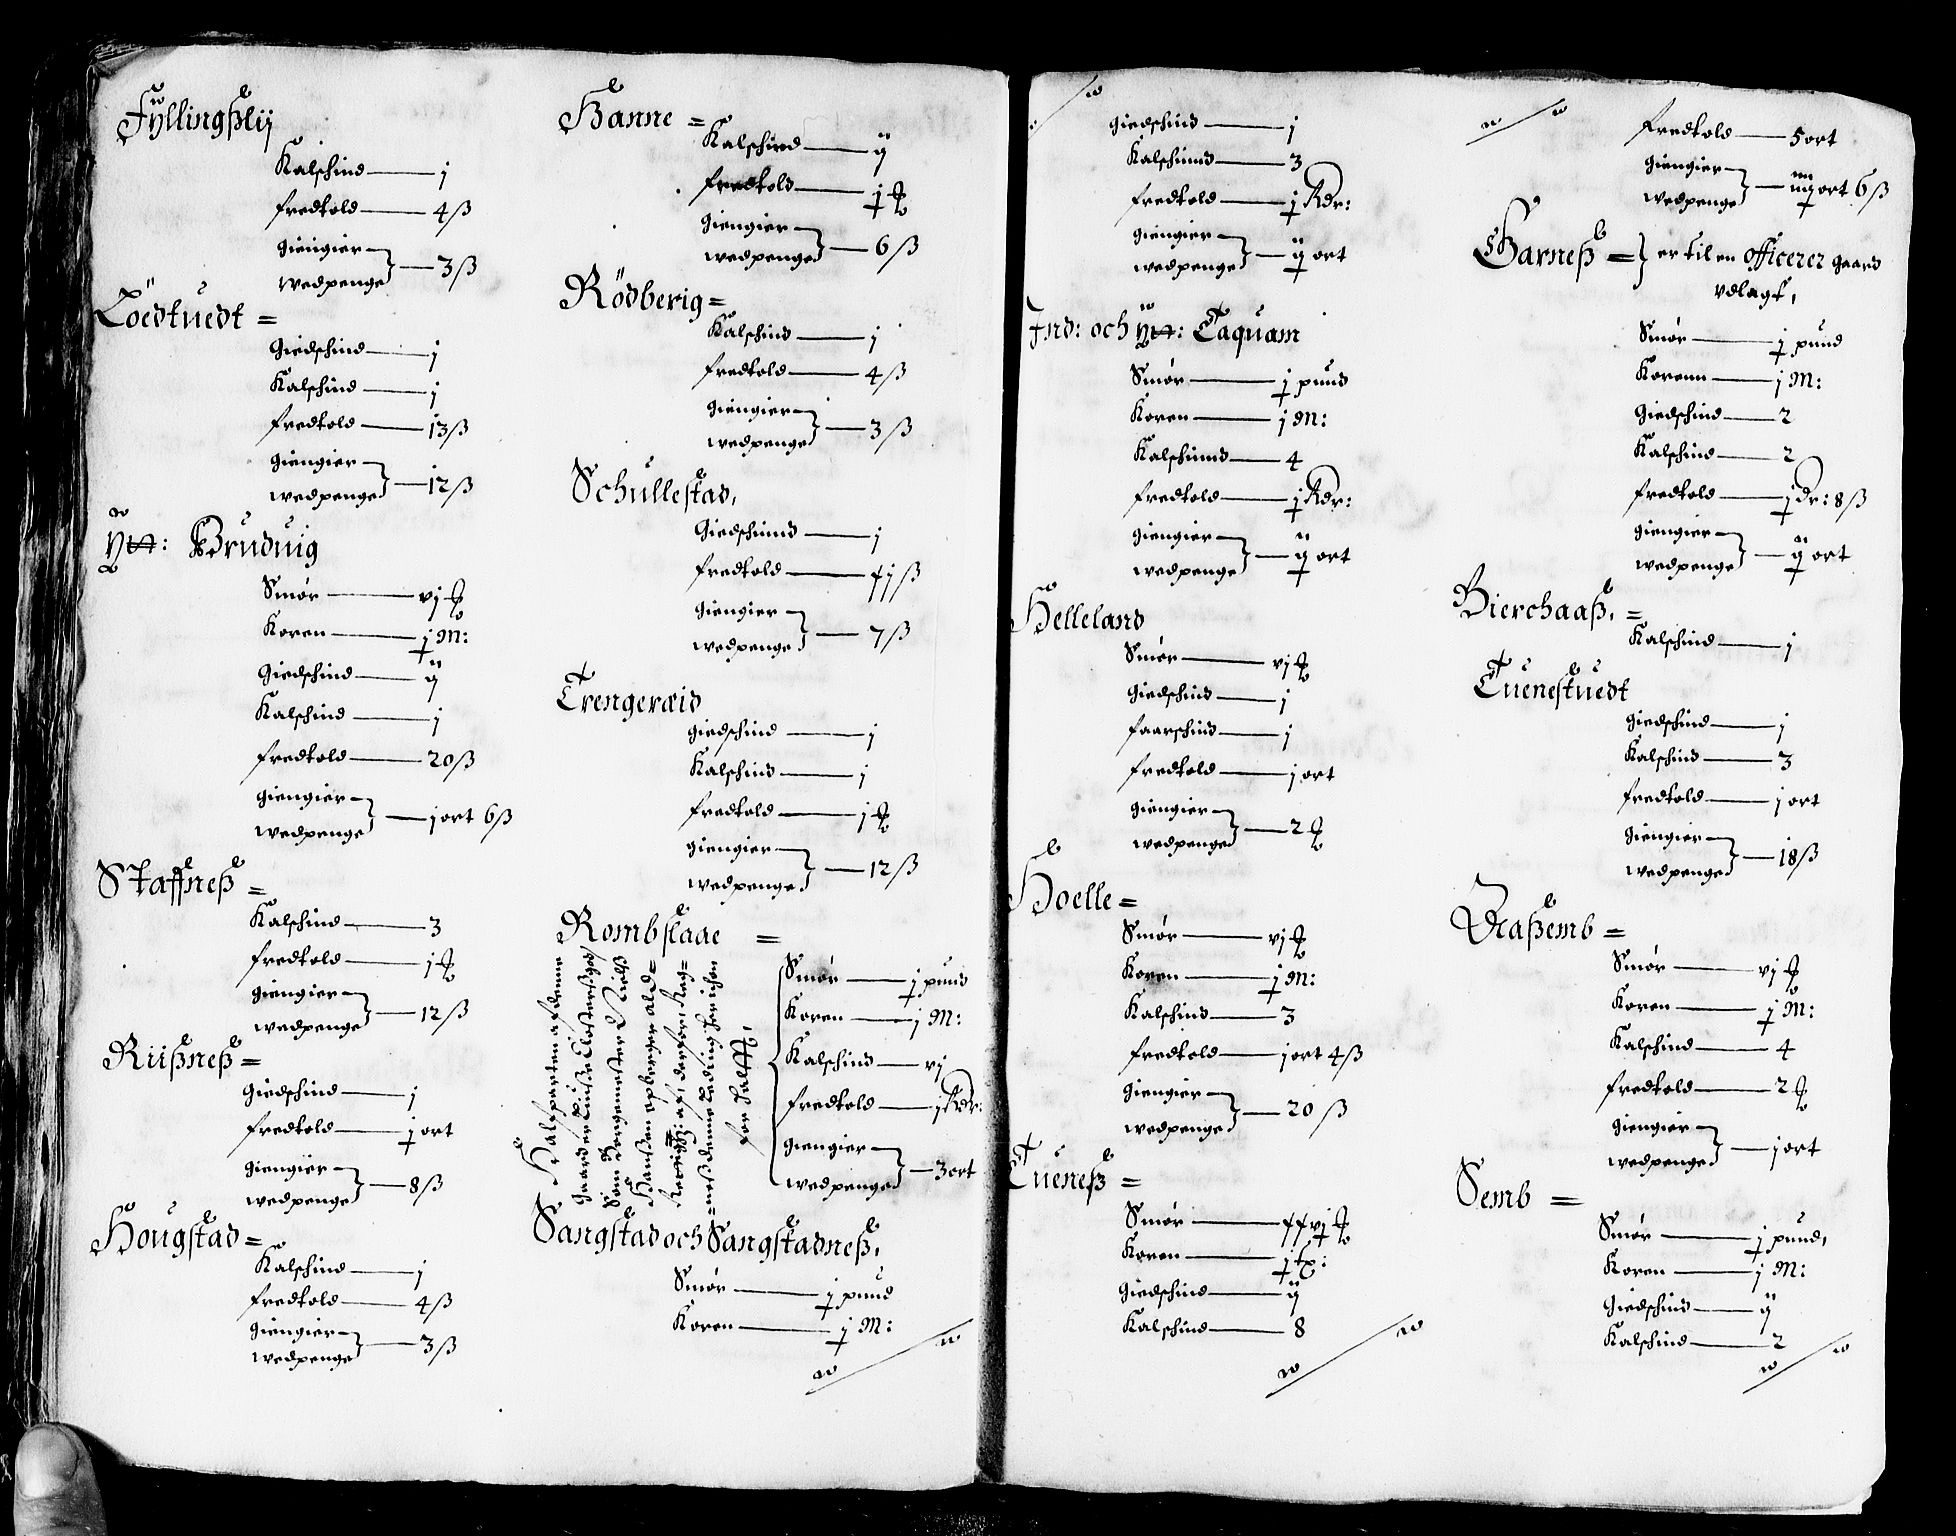 Fyllingßlij
Kalfschind — j
fredtold — 4 ß
giengier
wedpenge } — 3 ß
Löedtuedt =
Giedschind — j
Kalfschind — j
fredtold — 13 ß
giengier
wedpenge } — 12 ß
Bruduig
Smør — vj
Koren — j M:
Giedschind — ij
Kalfschind — j
fredtold — 20 ß
giengier
wedpenge } — j ort 6 ß
Staffneß =
Kalfschind — 3
fredtold — j
giengier
wedpenge } — 12 ß
Riißneß =
Giedschind — j
fredtold — j ort
giengier
wedpenge } — 8 ß
Hougstad =
Kalfschind — j
fredtold — 4 ß
giengier
wedpenge } — 3 ß
Hanne =
Kalfschind — ij
fredtold — j
giengier
wedpenge } — 6 ß
Rödberig =
Kalfschind — j
fredtold — 4 ß
giengier
wedpenge } — 3 ß
Schullestad,
Giedschind — j
fredtold — ß
giengier
wedpenge } — 7 ß
Trengeræid
giedschind — j
Kalfschind — j
fredtold — j
giengier
wedpenge } — 12 ß
Rombslaae =
Halfparten af denne
gaard er Lunße Closters gods
Som Borgemester Niels
Hanßen opberger ald=
for halft,
Smør — j pund
Koren — j M:
Kalfschind — vj
fredtold — j Rdr:
giengier
wedpenge } — 3 ort
Sangstad och Sangstadneß,
Smør — j pund
Koren — j M:
giedschind — j
Kalfschind — 3
fredtold — j Rdr:
giengier
wedpenge } — ij ort
Ind: och Taquam
Smør — j pund
Koren — j M:
Kalfschind — 4
fredtold — j Rdr:
giengier
wedpenge } — ij ort
Helleland
Smør — vj
giedschind — j
faarschind — j
fredtold — j ort
giengier
wedpenge } — 2
Hoelle =
Smør — vj
Koren — j M:
Kalfschind — 3
fredtold — j ort 4 ß
giengier
wedpenge } — 20 ß
Tueneß =
Smør — vj
Koren — j
giedschind — ij
Kalfschind — 8
fredtold — 5 ort
giengier
wedpenge } — iiij ort 6 ß
Garneß = } er til en officerer gaard
vdlagt,
Smør — j pund
Korenn — j M:
giedschind — 2
Kalfschind — 2
fredtold — j dr: 8 ß
giengier
wedpenge } — ij ort
Bierchaaß, =
Kalfschind — j
Tuenestuedt
giedschind — j
Kalfschind — 3
fredtold — j ort
giengier
wedpenge } — 18 ß
Raßemb =
Smør — vj
Koren — j M:
Kalfschind — 4
fredtold — 2
giengier
wedpenge } — j ort
Semb =
Smør — j pund,
Koren — j M:
Giedschind — ij
Kalfschind — 2